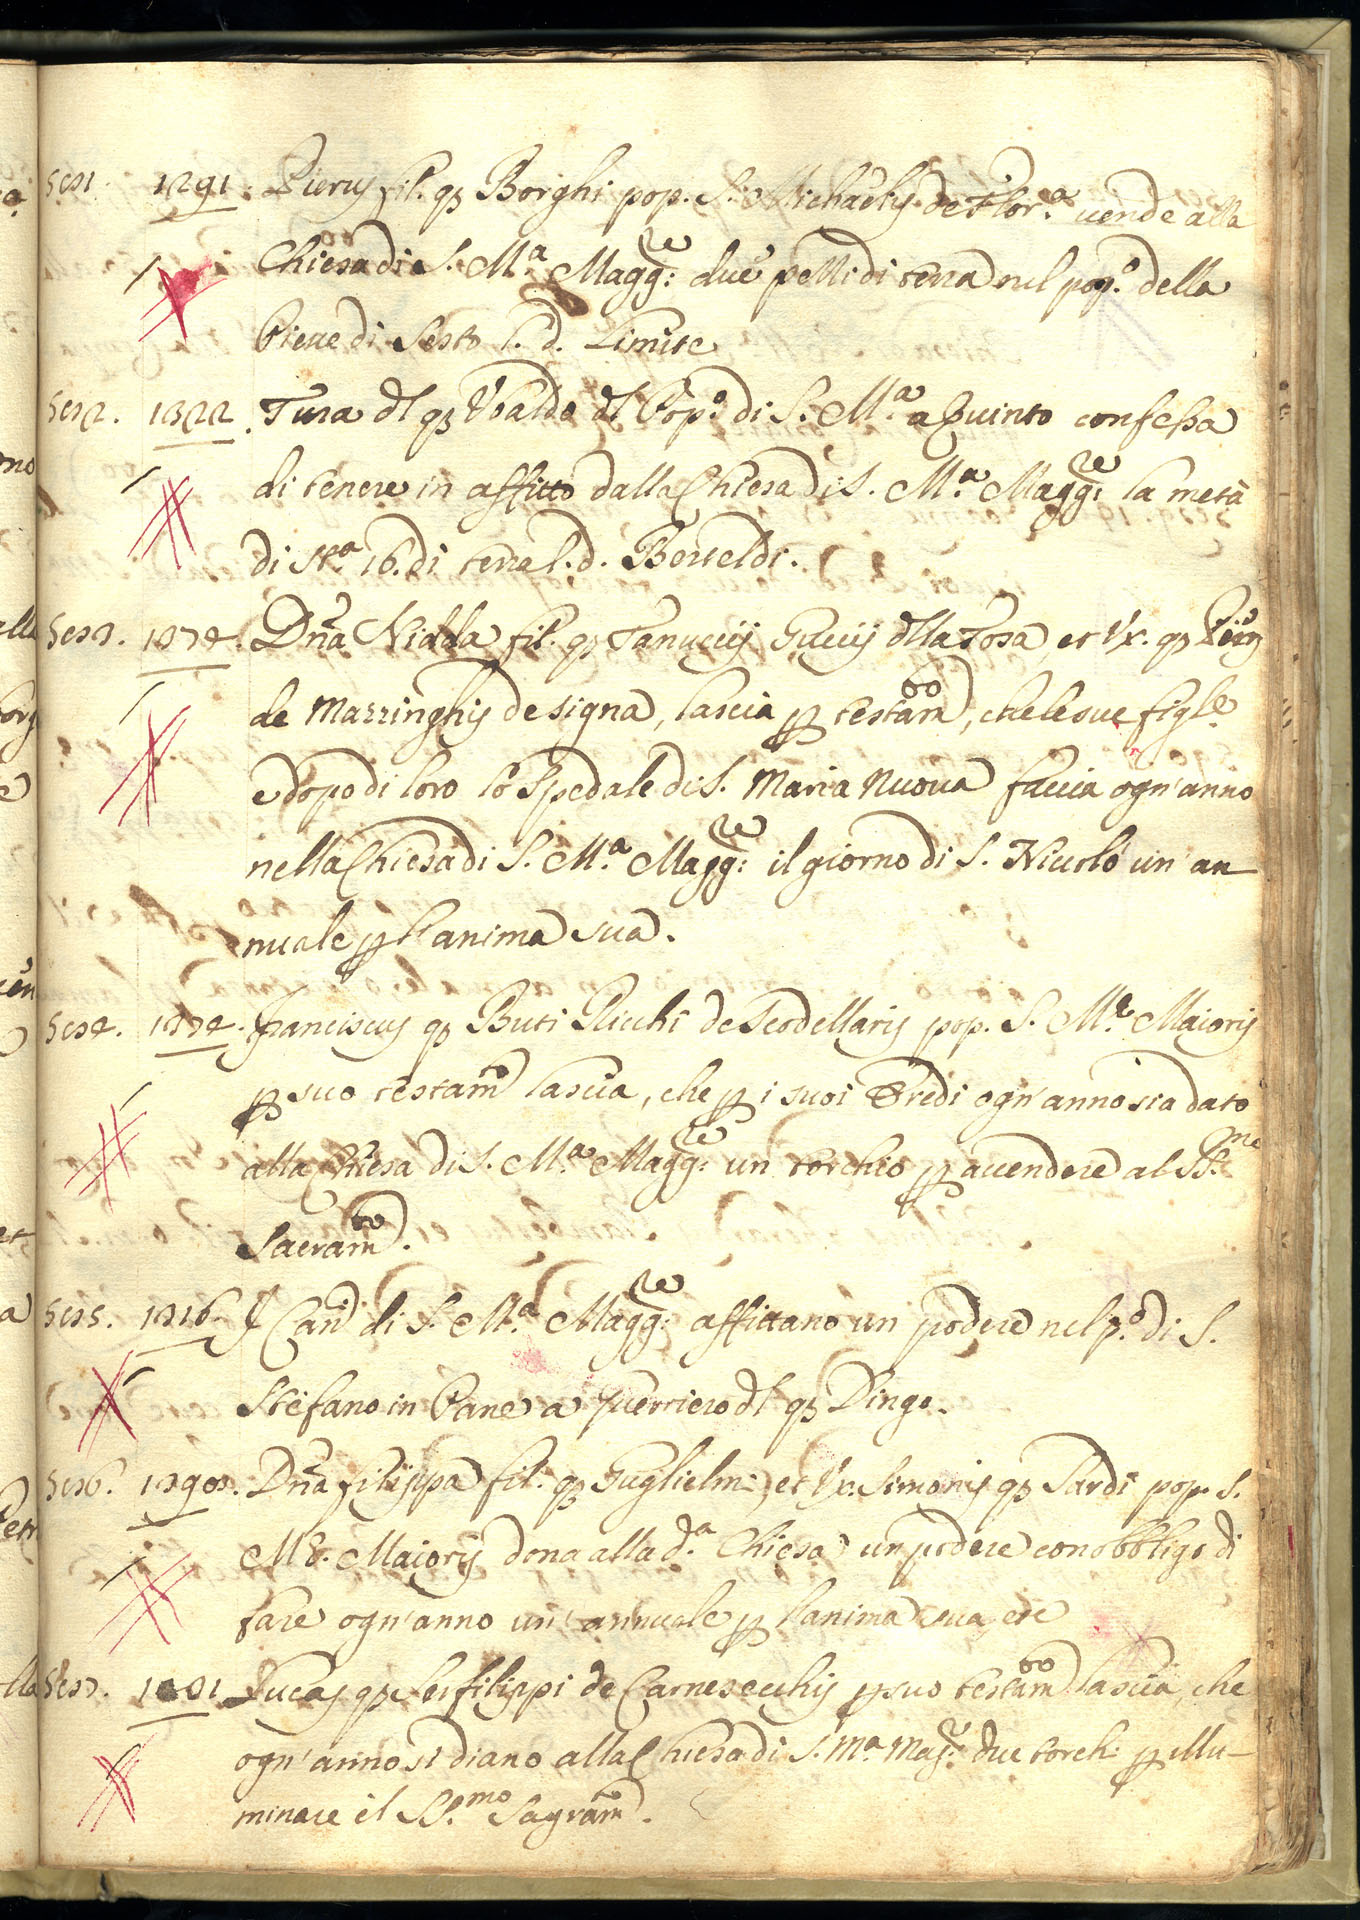 1291. Pierus fil. qz Borghi pop. S. Michaelis de Flor.a uende alla
Chiesa di S. M.a Magg:re due pezzi di terra nel pop.o della
Pieue di Sesto l. d. Limite
1322. Tura dl qz Vbaldo dl Pop.o di S. M.a a Quinto confessa
di tenere in affitto dalla Chiesa di S. M.a Magg:re la metà
di st.a 16. di terra l. d.
Dña Nidda fil. qz Tanuccij della Tosa, et Vx. qz
de Mazzinghis de Signa, lascia p testam.to, che le sue figl.e
e dopo di loro lo Spedale di S. Maria Nuoua faccia ogn'anno
nella Chiesa di S. M.a Magg:re il giorno di S. Niccolò un'an-
nuale p l'anima sua.
Franciscus qz Buti de pop. S. M.e Maioris
p suo testam lascia, che p i suoi Eredi ogn'anno sia dato
alla Chiesa di S. M.a Magg:re un torchio p accendere al SS.me
Sacram.to.
1316. I Can di S. M.a Magg:re affittano un podere nel p.o di S.
Stefano in Pane a Guerriero dl qz Dingo.
Dña Filippa fil. qz Guglielmi, et Vx. Simonis qz Sardi pop. S.
M.e Maioris dona alla d.a Chiesa un podere con obbligo di
fare ogn'anno un'annuale p l'anima sua etc
Lucas qz Ser Filippi de Carnesecchis p suo testam.to lascia, che
ogn'anno si diano alla Chiesa di S. M.a Mag:re due torchi p illu-
minare il SS.mo Sagram.